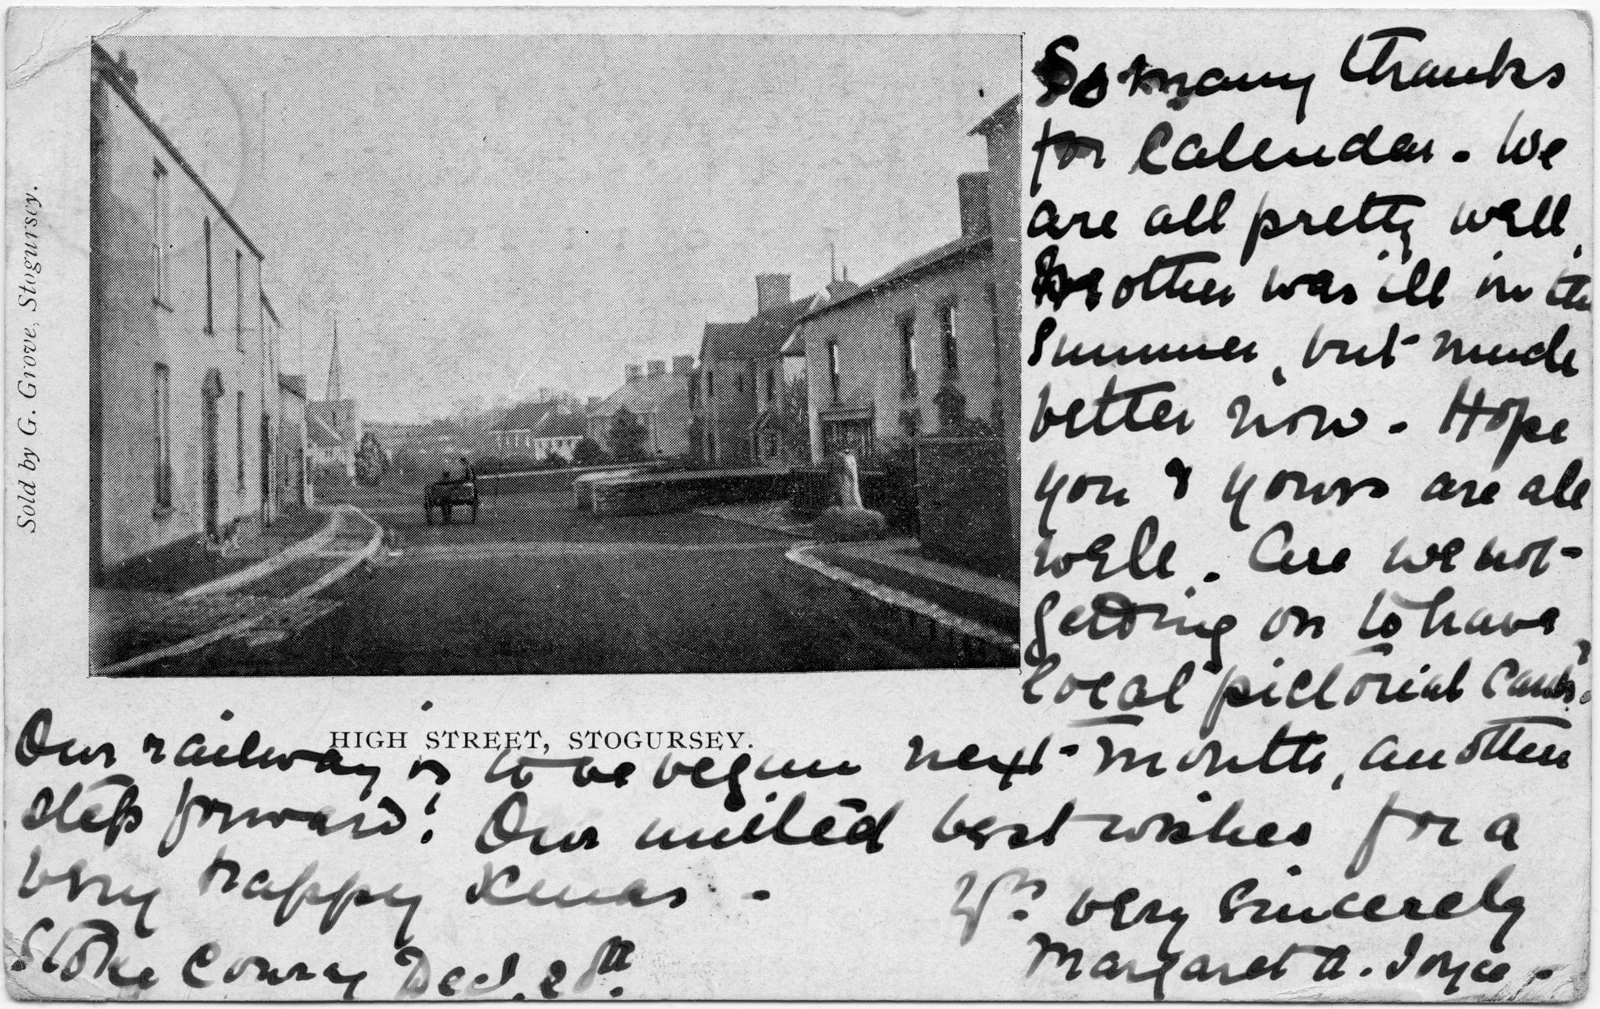 Sold by G. Grove, Stogursey.
So many thanks
for Calendar. We
are all pretty well,
Mother was ill in the
Summer, but much
better now. Hope
you & yours are all
well. Are we not
getting on to have
local pictorial Cards?
HIGH STREET, STOGURSEY.
Our railway is to be begun next month, another
step forward! Our united best wishes for a
very happy Xmas -
Yrs. very sincerely
Stoke Courcy Dec.
Margaret A. Joyce.